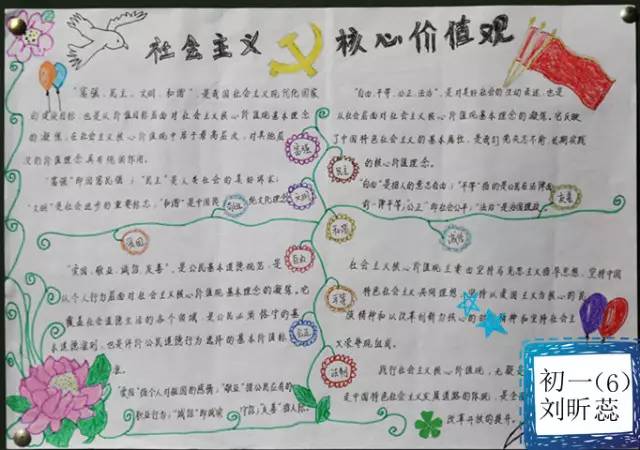 社会主义 核心价值观
"富强、民主、文明、和谐",是我国社会主义现代化国家
的建设目标,也是从价值目标层面对社会主义核心价值观基本理念
的凝练,在社会主义核心价值观中居于最高层次,对其他层
次的价值理念具有统领作用。
"富强"即国富民强;"民主"是人类社会的美好诉求;
"文明"是社会进步的重要标志,"和谐"是中国传 文化理念
"爱国、敬业、诚信、友善",是公民基本道德规范,是
从个人行为层面对社会主义核心价值观基本理念的凝练。它
覆盖社会道德生活的各个领域,是公民必须恪守的基
本道德准则,也是评价公民道德行为选择的基本价值标
准。
"爱国"指个人对祖国的感情,"敬业"指公民应有的
职业行为,"诚信"即诚实 "友善"指人际
"自由、平等、公正、法治",是对美好社会的生动表述,也是
从社会层面对社会主义核心价值观基本理念的凝练。它反映
了中国特色社会主义的基本属性,是我们党矢志不渝、长期实践
的核心价值理念。
"自由"是指人的意志自由;"平等"指的是公民在法律面
前一律平等;"公正"即社会公平;"法治"是治国理政
社会主义核心价值观主要由坚持马克思主义指导思想,坚持中国
特色社会主义共同理想,坚持以爱国主义为核心的民
族精神和以改革创新为核心的时 精神和坚持社会主
义荣辱观组成。
践行社会主义核心价值观,无疑是
走中国特色社会主义发展道路的体现,是全面
改革开放的提升。
富强
民主
文明
敬业
友善
爱国
和谐
诚信
自由
平等
公正
法制
初一(6)
刘昕蕊